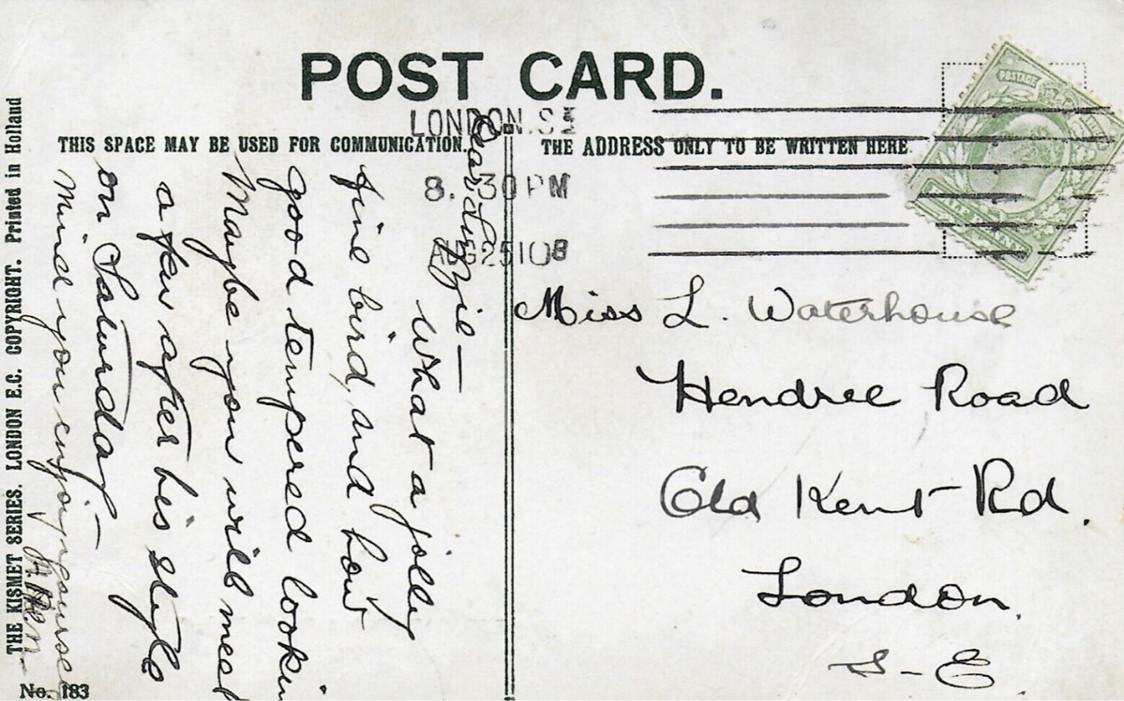 POST CARD.
LONDON.S.E
8.30PM
AUG25108
THIS SPACE MAY BE USED FOR COMMUNICATION.
THE ADDRESS ONLY TO BE WRITTEN HERE.
POSTAGE
Dear Lizzie—
What a jolly
fine bird, and how
good tempered lookin
Maybe you will meet
a few after his style
on Saturday—
Mind you enjoy yourself
Miss L. Waterhouse
Hendree Road
Old Kent Rd.
London.
S-E.
THE KISMET SERIES. LONDON E.C. COPYRIGHT. Printed in Holland
No. 183